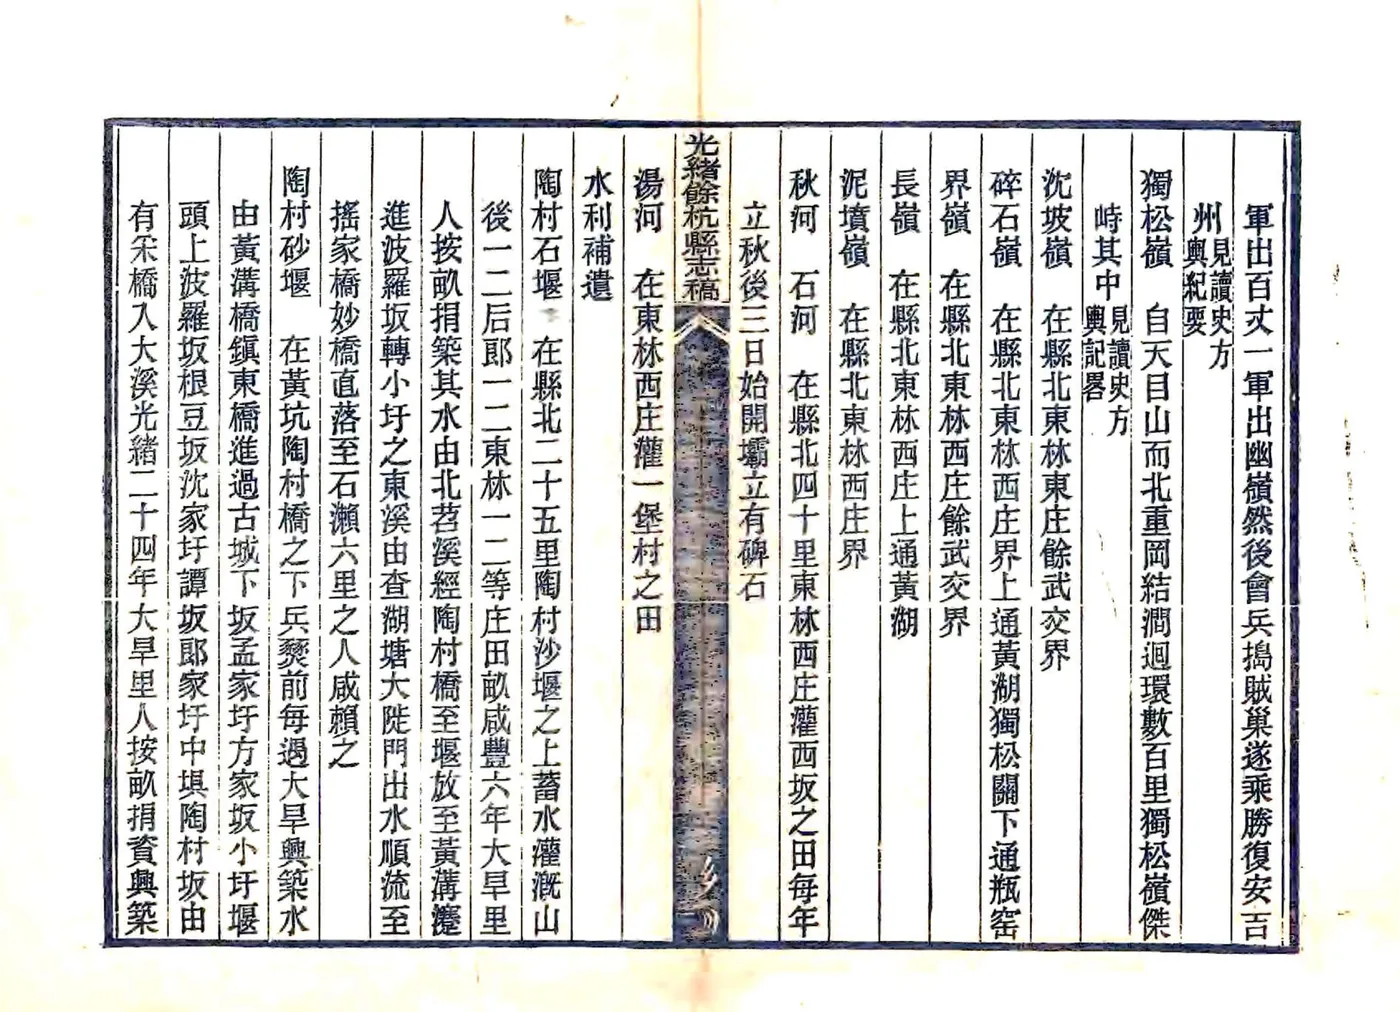 軍出百丈一軍出幽嶺然後會兵搗賊巢遂乘勝復安吉
州見讀史方輿紀要
獨松嶺　自天目山而北重岡結澗迴環數百里獨松嶺傑
峙其中見讀史方輿記畧
沈坡嶺　在縣北東林東庄餘武交界
碎石嶺　在縣北東林西庄界上通黃湖獨松關下通瓶窑
界嶺　在縣北東林西庄餘武交界
長嶺　在縣北東林西庄上通黃湖
泥墳嶺　在縣北東林西庄界
秋河　石河　在縣北四十里東林西庄灌西坂之田每年
立秋後三日始開壩立有碑石
光緒餘杭縣志稿
湯河　在東林西庄灌一堡村之田
水利補遺
陶村石堰　在縣北二十五里陶村沙堰之上蓄水灌溉山
後一二后郎一二東林一二等庄田畝咸豐六年大旱里
人按畝捐築其水由北苕溪經陶村橋至堰放至黃溝瀊
進波羅坂轉小圩之東溪由查湖塘大陡門出水順流至
搖家橋妙橋直落至石瀨六里之人咸賴之
陶村砂堰　在黃坑陶村橋之下兵燹前每遇大旱興築水
由黃溝橋鎮東橋進過古城下坂孟家圩方家坂小圩堰
頭上波羅坂根豆坂沈家圩譚坂郎家圩中垻陶村坂由
有禾橋入大溪光緒二十四年大旱里人按畝捐資興築